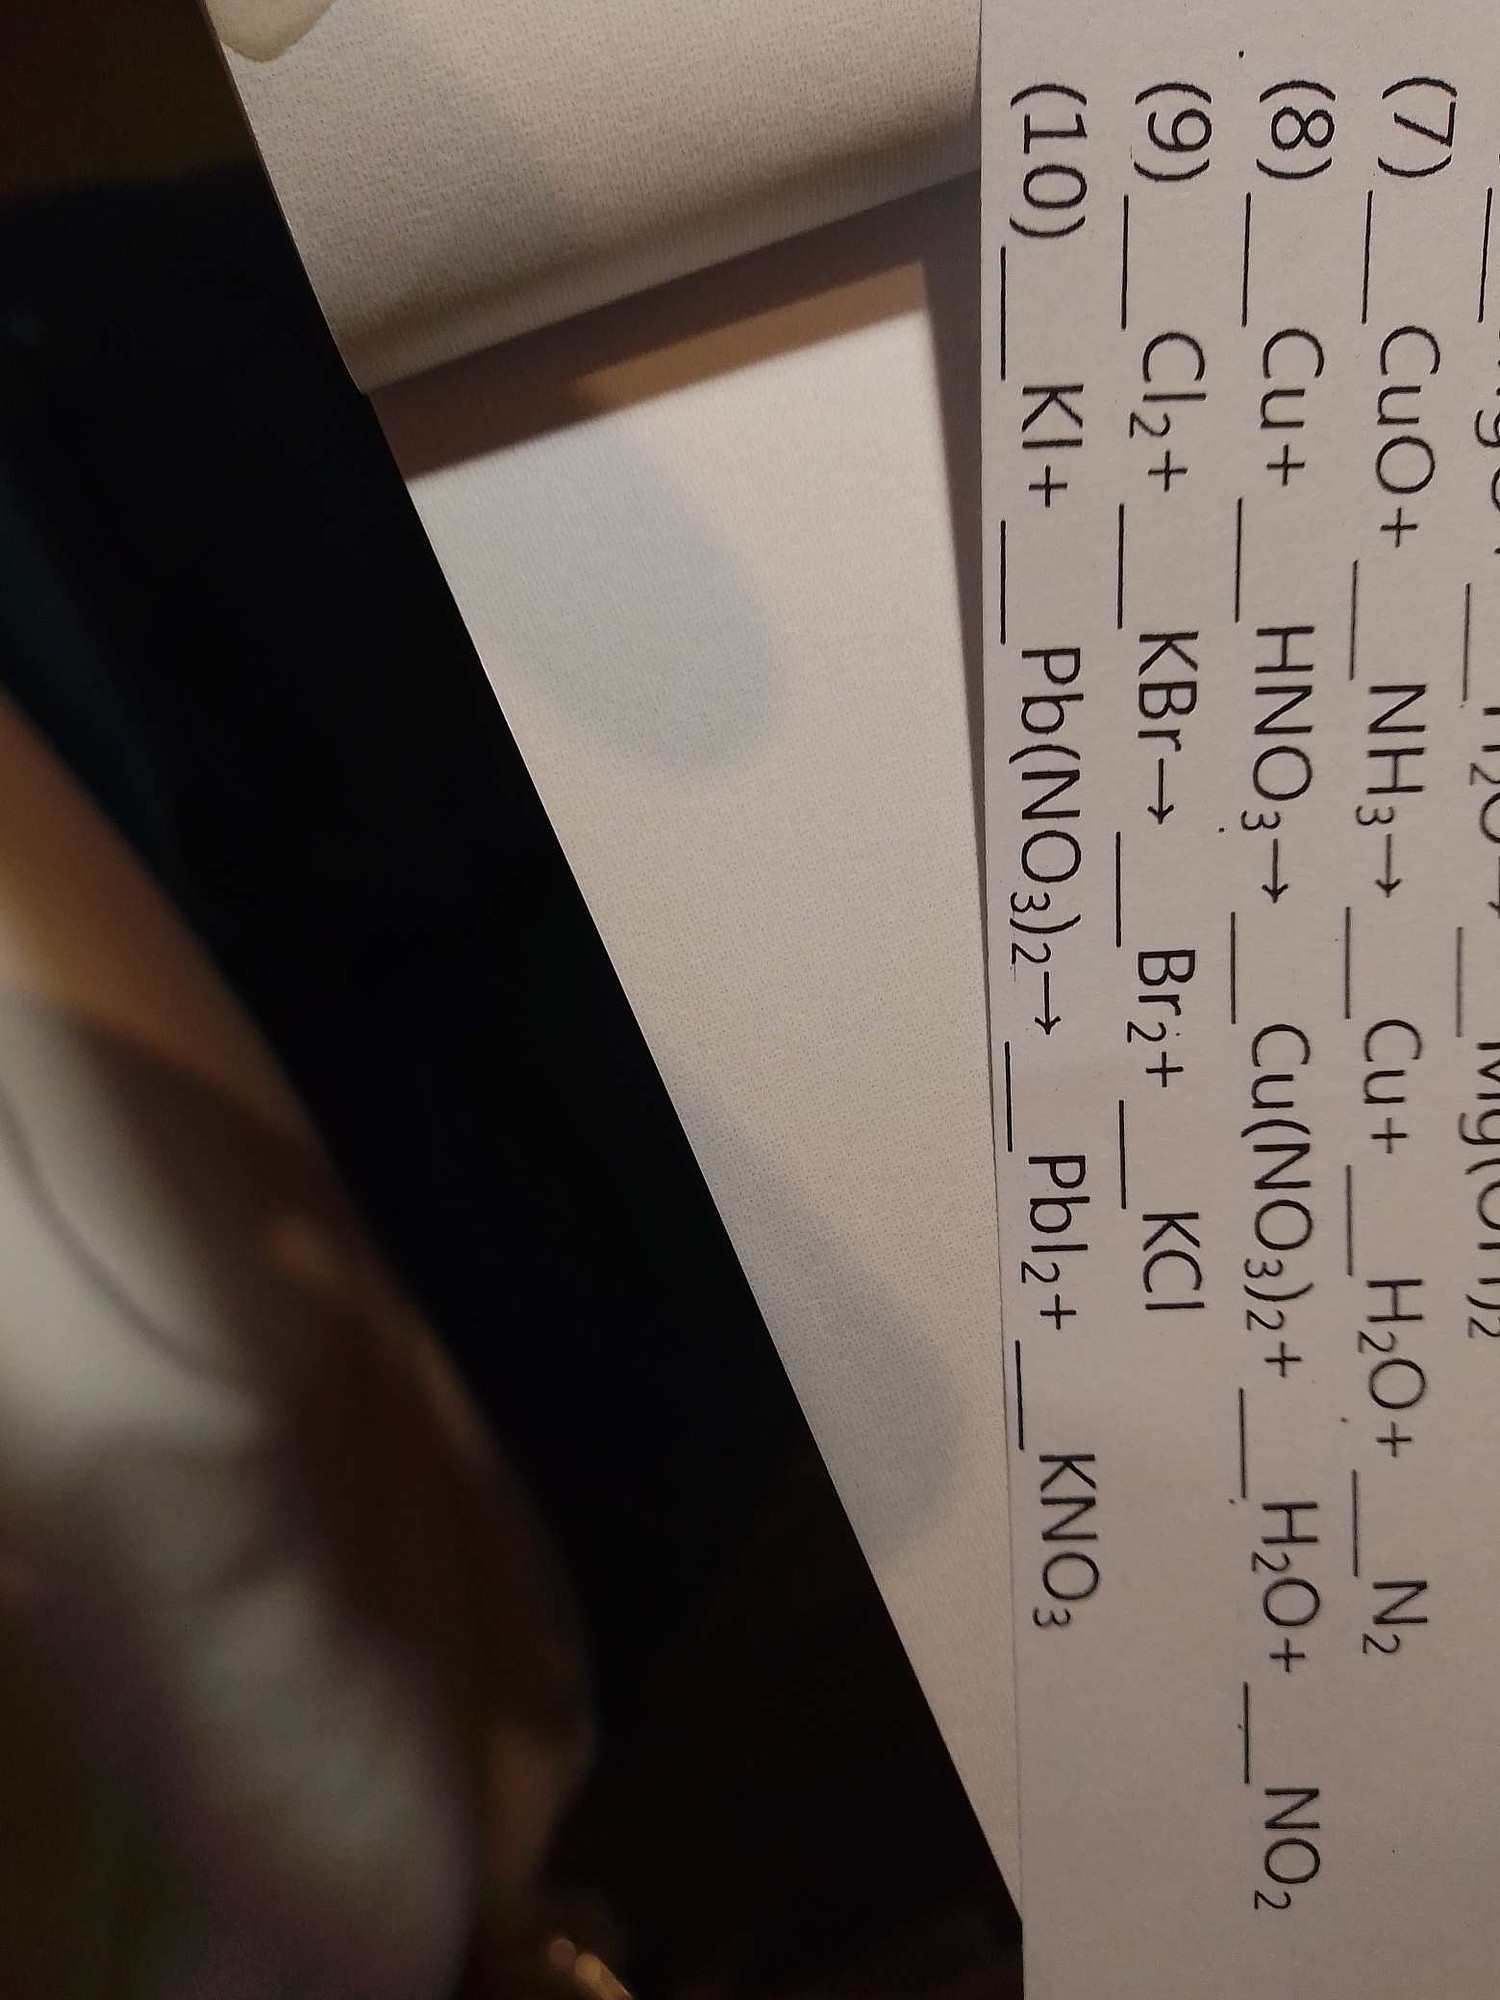 (7) ___CuO+ ___NH₃→ ___Cu+ ___H₂O+ ___N₂
(8) ___Cu+ ___HNO₃→ ___Cu(NO₃)₂+ ___H₂O+ ___NO₂
(9) ___Cl₂+ ___KBr→ ___Br₂+ ___KCl
(10) ___KI+ ___Pb(NO₃)₂→ ___PbI₂+ ___KNO₃